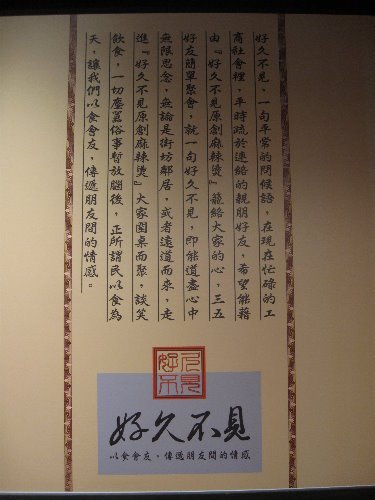 好久不見，一句平常的問候語，在現在忙碌的工
商社會裡，平時疏於連絡的親朋好友，希望能藉
由『好久不見原創麻辣燙』龍絡大家的心，三五
好友簡單聚會，就一句好久不見，即能道盡心中
無限思念，無論是街坊鄰居，或者遠道而來，走
進『好久不見原創麻辣燙』大家圍桌而聚，談笑
飲食，一切塵囂俗事暫放腦後，正所謂民以食為
天，讓我們以食會友，傳遞朋友間的情感。
好久不見
好久不見
以食會友，傳遞朋友間的情感